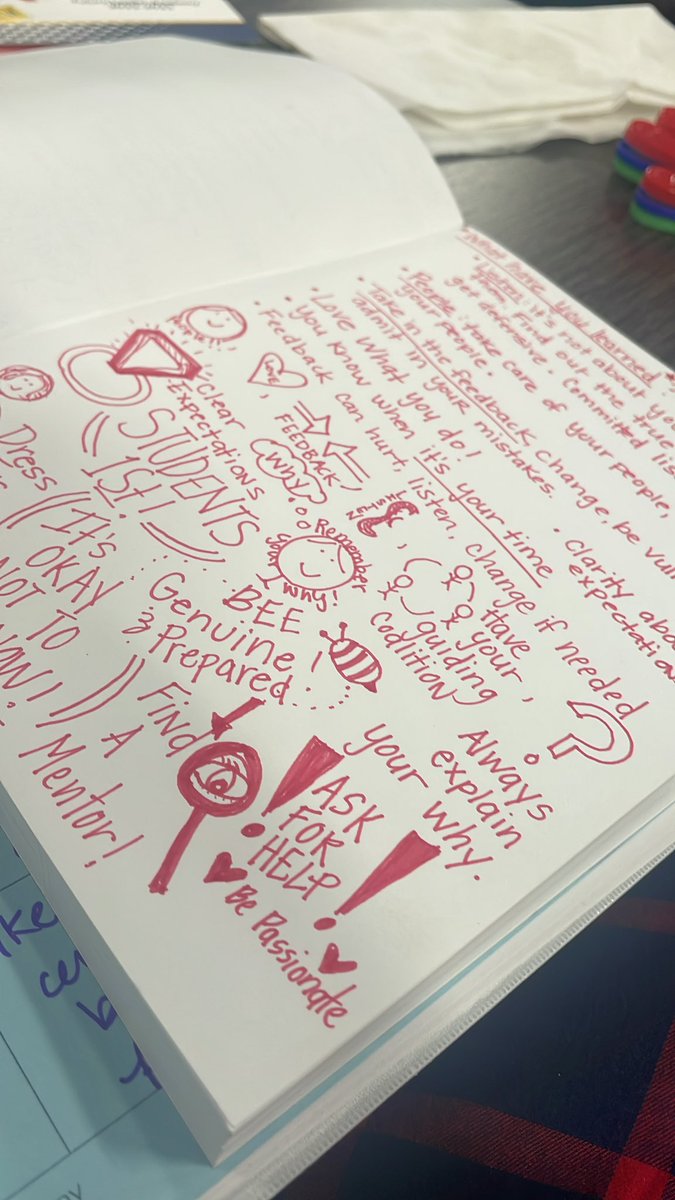 What have you learned
• Listen: it's not about you
Find out the true
get defensive. Committed lis
• People: take care of your people,
your people.
• take in the feedback, change, be vul
admit in your mistakes.
• Love what you do!
• You know when it's your time
• Feedback can hurt, listen, change if needed
• Clarity abo
expectation
Clear
Expectations
FEEDBACK!
(Why)
STUDENTS
1st!
Remember
your
why.
Have
your
guiding
Coalition
BEE
Genuine
& Prepared
Dress
It's
OKAY
NOT TO
KNOW!
Find
A
Mentor!
Always
explain
your why.
ASK
FOR
HELP
Be Passionate